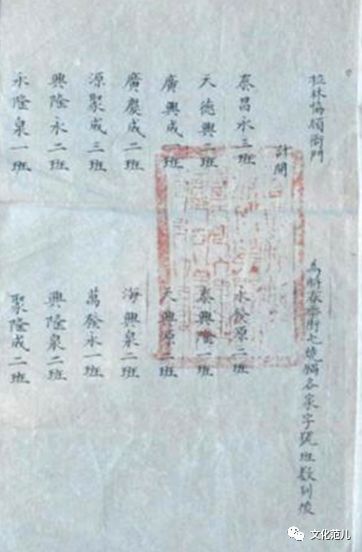 拉林協領衙門 為將街七燒鍋各家字號班数列後
計開
泰昌永三班 永發源二班
天德興二班 泰興隆一班
廣興成班 天興源二班
廣慶成二班 海興泉二班
源聚成三班 萬發永一班
興隆永二班 興隆泉二班
永隆泉一班 聚隆成二班
文化范儿